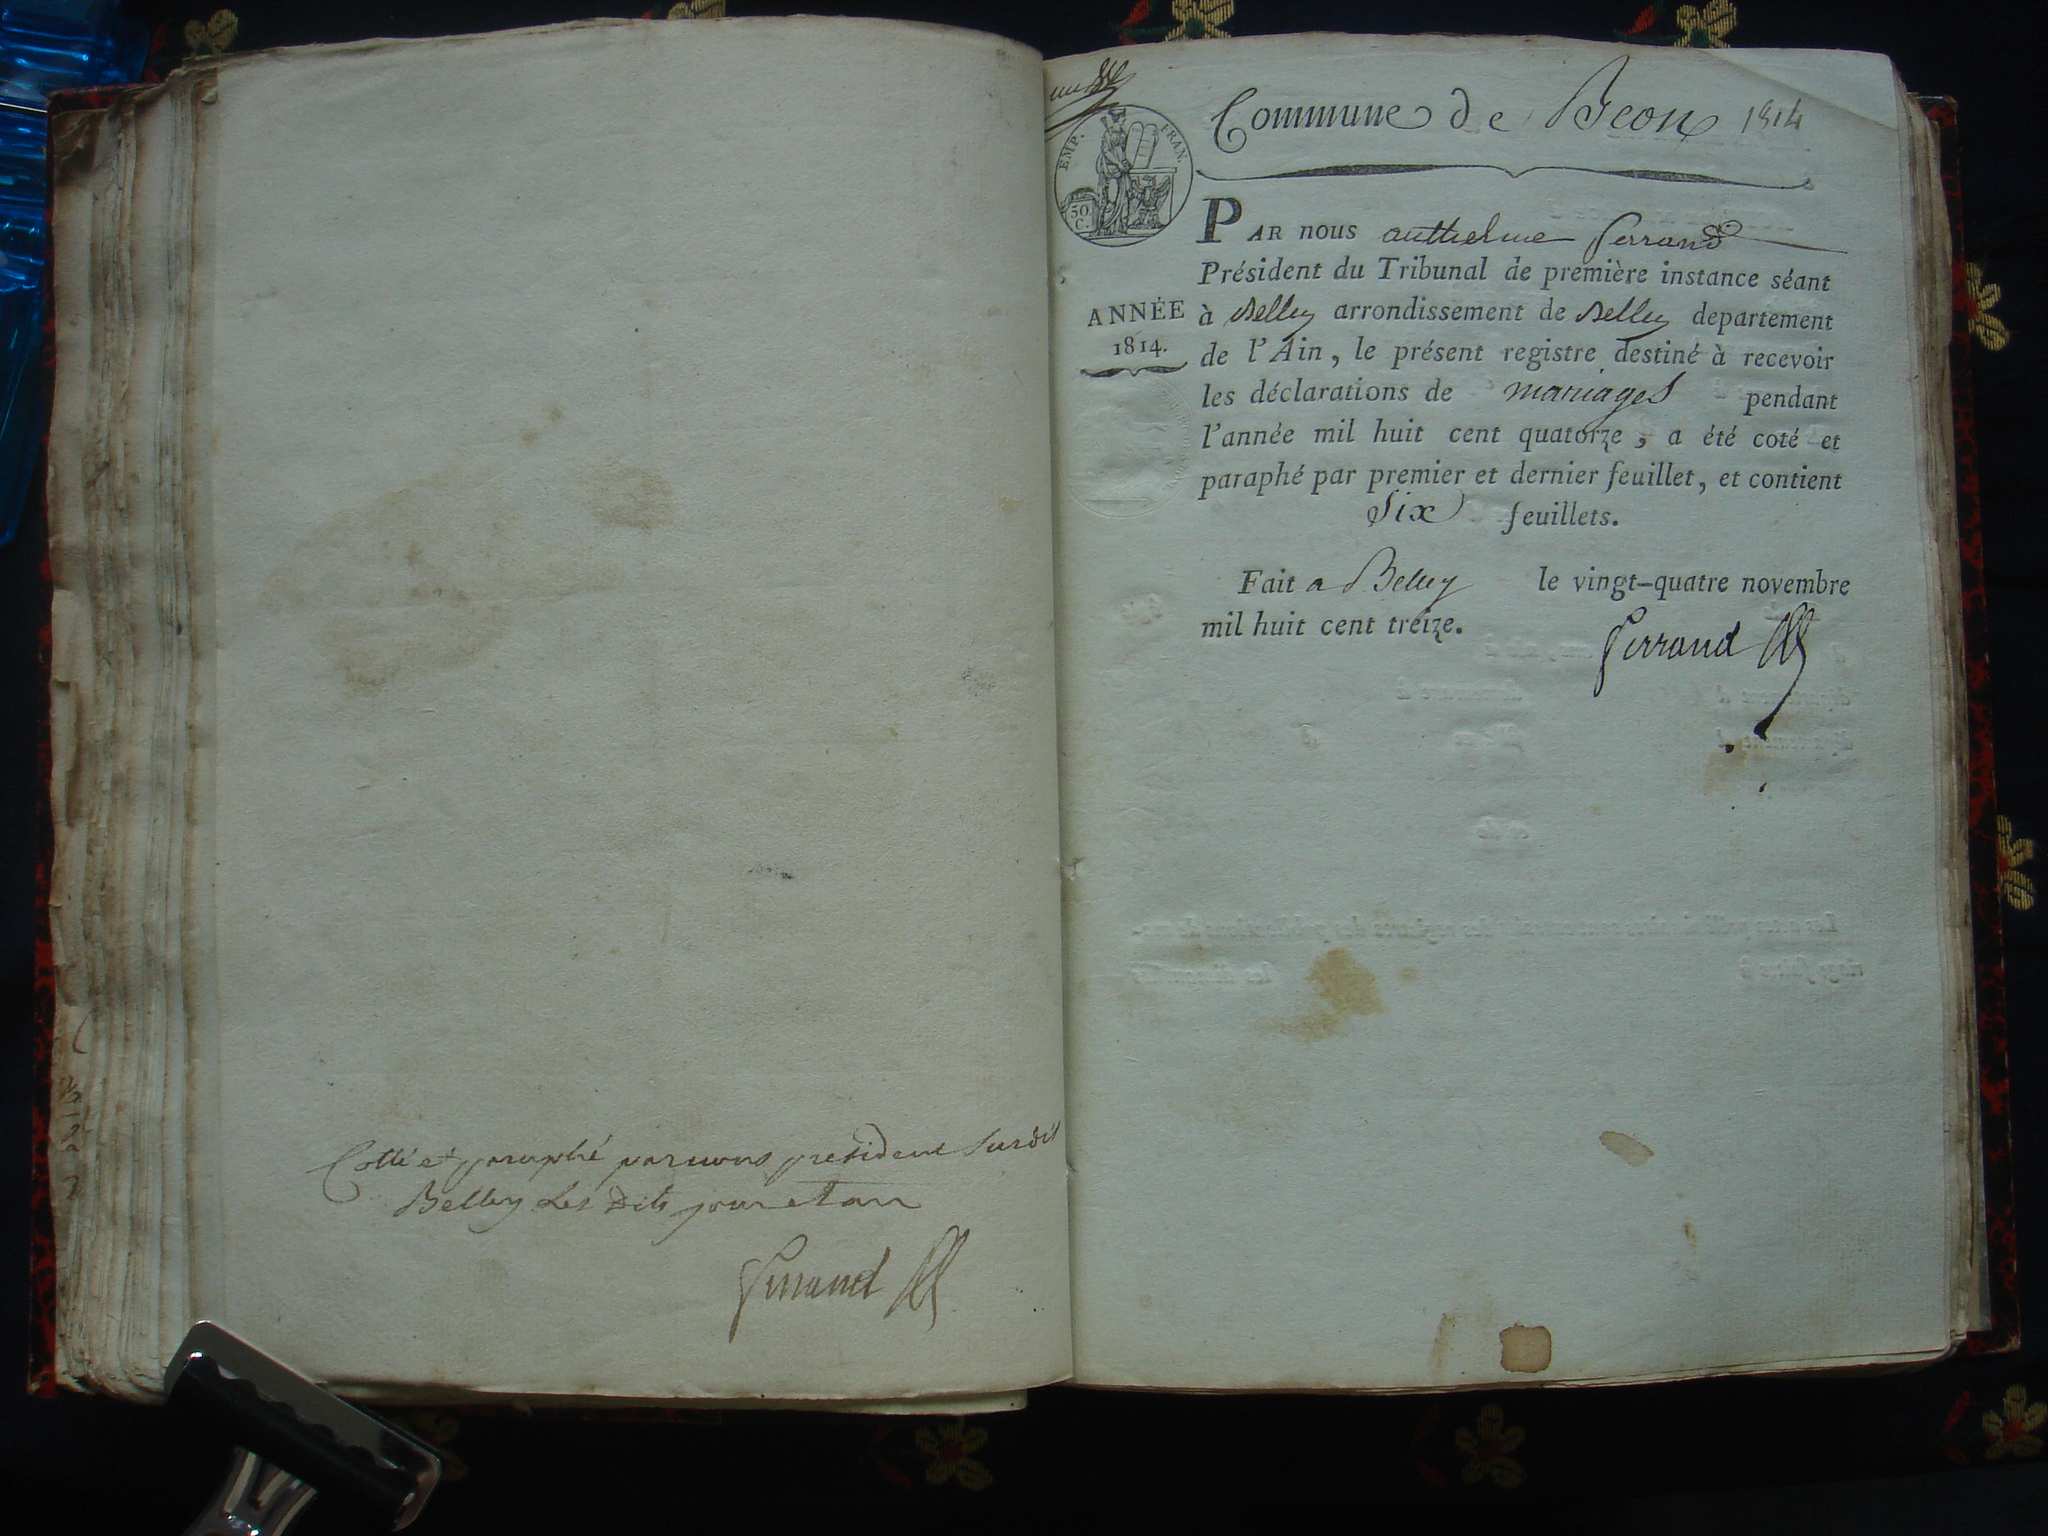 Cotté et paraphé par nous président Susdit
Belley les dits jour et an
Ferrand
Commune de Beon 1814
EMP. FRAN.
50
C.
PAR nous anthelme ferrand
Président du Tribunal de première instance séant
ANNÉE
1814.
à Belley arrondissement de Belley departement
de l'Ain, le présent registre destiné à recevoir
les déclarations de mariages pendant
l'année mil huit cent quatorze, a été coté et
paraphé par premier et dernier feuillet, et contient
Six feuillets.
Fait a Belley le vingt-quatre novembre
mil huit cent treize.
ferrand